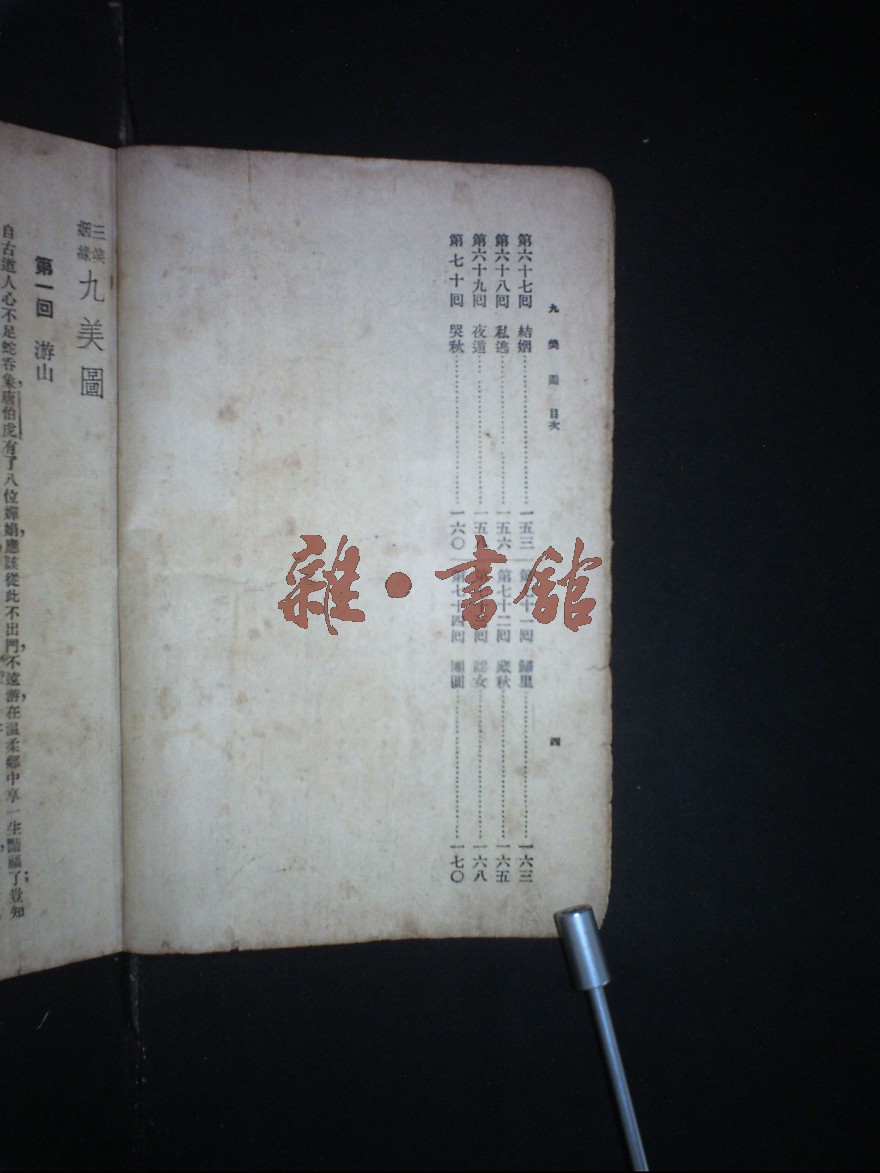 九美圖目次
四
第六十七回 結姻……一五三
第六十八回 私逃……一五六
第六十九回 夜遁……一五
第七十回 哭秋……一六〇
第 十一回 歸里……一六三
第七十二回 藏秋……一六五
第 回 認女……一六八
第七十四回 團圓……一七〇
雜·書館
三笑姻緣 九美圖
第一回 游山
自古道人心不足蛇吞象，唐伯虎有了八位嬋娟，應該從此不出門，不遠游，在溫柔鄉中享一生豔福了；豈知